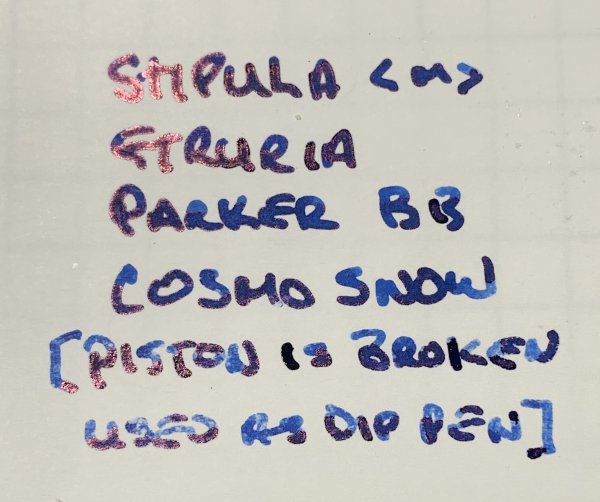 STIPULA <M>
ETRURIA
PARKER BB
COSMO SNOW
[PISTON IS BROKEN
USED AS DIP PEN]